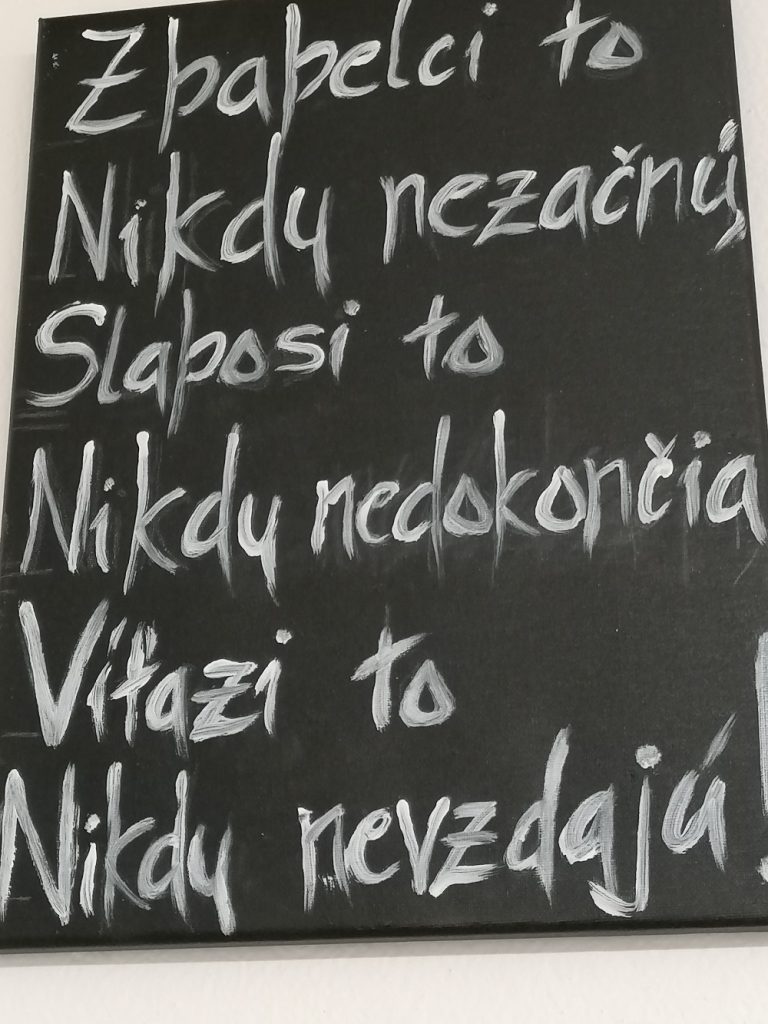 Zbabelci to
Nikdy nezačnú,
Slabosi to
Nikdy nedokončia
Víťazi to
Nikdy nevzdajú!